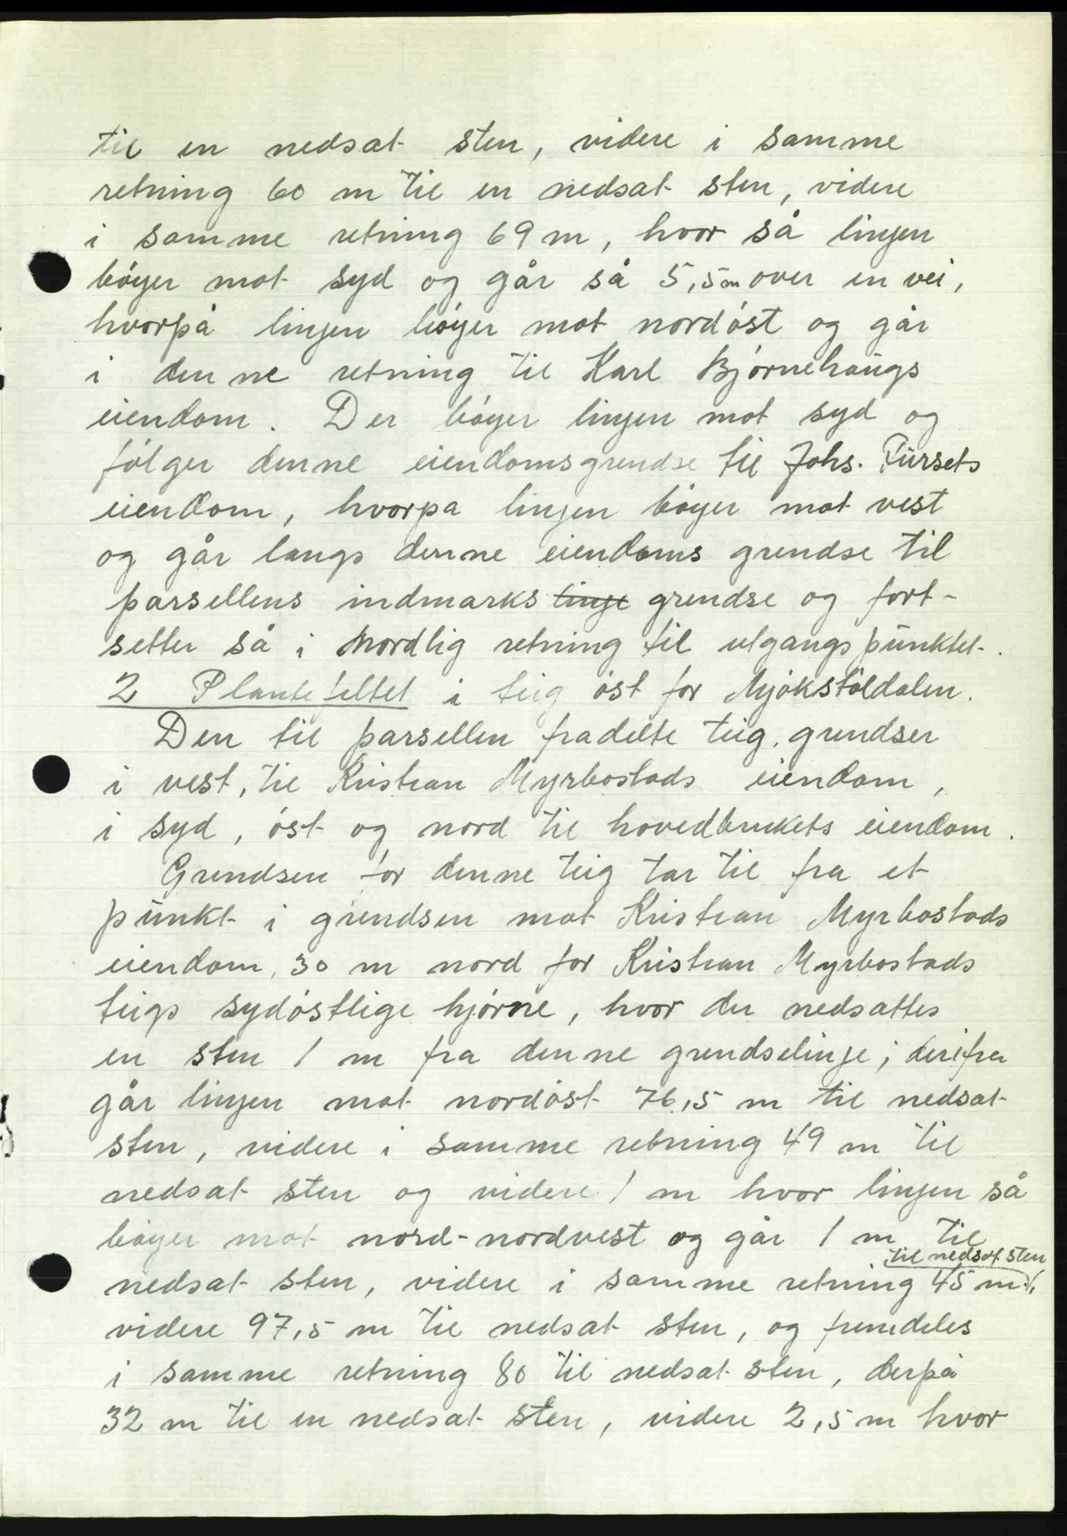 til en nedsat sten, videre i samme
retning 60 m til en nedsat sten, videre
i samme retning 69 m, hvor så linjen
bøyer mot syd og går så 5,5 m over en vei,
hvorpå linjen bøyer mot nordøst og går
i denne retning til Karl Bjørnehaugs
eiendom. Der bøyer linjen mot syd og
følger denne eiendomsgrendse til Johs. Fursets
eiendom, hvorpa linjen bøyer mot vest
og går langs denne eiendoms grendse til
parsellens indmarks linje grendse og fort-
setter så i nordlig retning til utgangspunktet.
2 Plantefeltet i teig øst for Mjøkstøldalen.
Den til parsellen fradelte teig, grendser
i vest, til Kristian Myrbostads eiendom,
i syd, øst og nord til hovedbrukets eiendom.
Grendsen for denne teig tar til fra et
punkt i grendsen mot Kristian Myrbostads
eiendom, 30 m nord for Kristian Myrbostads
teigs sydøstlige hjørne, hvor der nedsattes
en sten 1 m fra denne grendselinje; derifra
går linjen mot nordøst 76,5 m til nedsat
sten, videre i samme retning 49 m til
nedsat sten og videre 1 m hvor linjen så
bøyer mot nord-nordvest og går 1 m til
til nedsat sten
nedsat sten, videre i samme retning 45 m,
videre 97,5 m til nedsat sten, og fremdeles
i samme retning 80 til nedsat sten, derpå
32 m til en nedsat sten, videre 2,5 m hvor